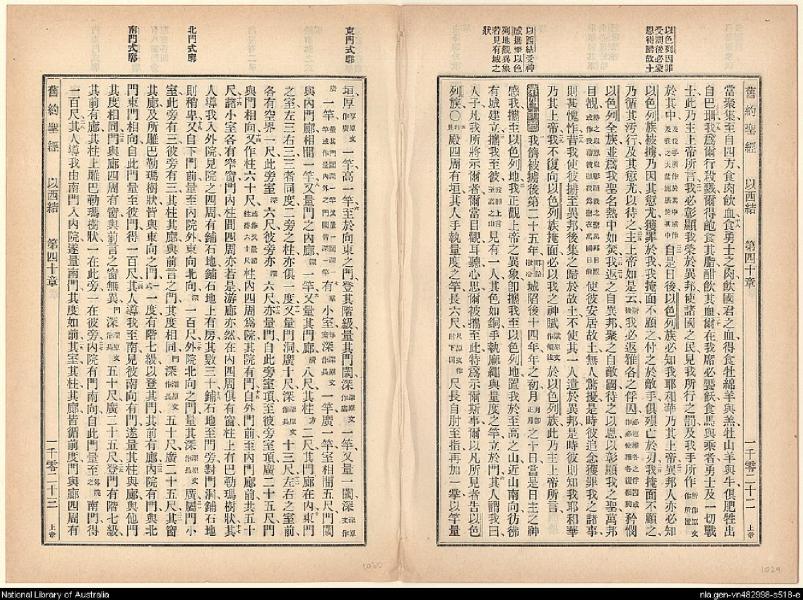 以色列因罪
受罰後必蒙
恩得歸故土
以西結受神
感攜至以色
列地觀異象
若見有城之
狀
舊約聖經 以西結 第四十章 一千零二十二 上帝
當聚集至自四方食肉飲血食勇士之肉飲國君之血得食牡綿羊與羔牡山羊與牛俱肥牲出
自巴珊我爲爾行殺戮爾得飽食其脂酣飲其血爾在我席必饜飫食馬與乘者勇士及一切戰
士此乃主上帝所言我必彰顯我榮於異邦使諸國之民見我所行之罰及我手所作
於其中自是日後以色列族必知我耶和華乃其上帝異邦人亦必知
以色列族被擄乃因其愆尤獲罪於我我掩面不顧之付之於敵手俱殞亡於刃我掩面不顧之
乃循其污行及其愆尤以待之主上帝如是云我必返雅各之俘囚矜憫
以色列全族並爲我聖名熱中如焚我返之自異邦聚之自敵國待之以恩以彰顯我之聖萬邦
目覩使彼安居故土無人驚擾是時彼追念獲罪我之諸事
則甚愧怍昔我使彼擄至異邦後集之歸於故土不使其一人遺於異邦是時彼則知我耶和華
乃其上帝我不復向以色列族掩面必以我之神賦於以色列族此乃主上帝所言
第四十章 我儕被擄後第二十五年城陷後十四年年之初月之十日當是日主之神
感我攜至以色列地我正觀上帝之異象卽攜我至以色列地置我於至高之山近山南向彷彿
有城建立攜我至彼見有一人其色如銅手執麻繩與量度之竿立於門其人謂我曰
人子凡我所將示爾者爾當目觀耳聽心思爾被攜至此特爲示爾斯事爾以凡所見者告以色
列族〇殿四周有垣其人手執量度之竿長六尺尺長自肘至指再加一掌以竿量
東門式廓
北門式廓
南門式廓
垣厚一竿高一竿至於向東之門登其階級量其門閾深一竿又量一閾深
一竿有小室深一竿廣一竿室相間五尺門閾
與內門廊相間一竿又量門之內廊一竿又量其門廊八尺其柱二尺其門廊在內東門
之室左三右三三者同度二旁之柱亦俱一度又量門洞廣十尺深十三尺左右之室前
各有空界一尺此旁室六尺彼旁亦六尺亦量門自此旁室頂至彼旁室頂廣二十五尺門
與門相向又作柱六十尺柱內四周爲院其院有門自外門前至內門廊前共五十
尺諸小室各有窄窗門內柱間四周亦若是游廊亦然在內四周俱有窗柱上有巴勒瑪樹狀其
人導我入外院見院之四周有鋪石地鋪石地上有房其數三十鋪石地至門旁對門洞鋪石地
則稍卑又自下門前量至內院外東向北向一百尺外院北向之門量其深廣廣門小
室此旁有三彼旁有三其柱其廊與前言之門其度相同深五十尺廣二十五尺其窗
其廊及所雕巴勒瑪樹狀皆與東向之門一度有階七級以登其門其前有廊內院有門與北
門東門相向自此門量至彼門得一百尺其人導我至南見彼南向有門遂量其柱與廊與他門
其度相同門與廊四周有窗與前言之窗無異深五十尺廣二十五尺登門有階七級
其前有廊其柱上雕巴勒瑪樹狀一在此旁一在彼旁內院有門南向自此門量至南門得
一百尺其人導我由南門入內院遂量南門其度如前其室其柱其廊皆循前度門與廊四周有
舊約聖經 以西結 第四十章 一千零二十三 上帝
1030
1029
National Library of Australia
nla.gen-vn482998-s518-e